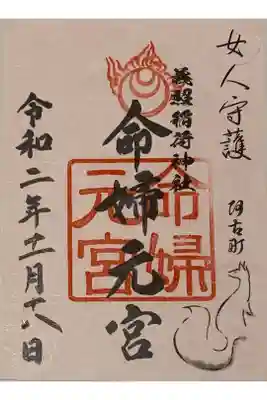 女人守護
阿古町
義照稲荷神社
命婦元宮
命婦元宮
令和二年十一月十八日